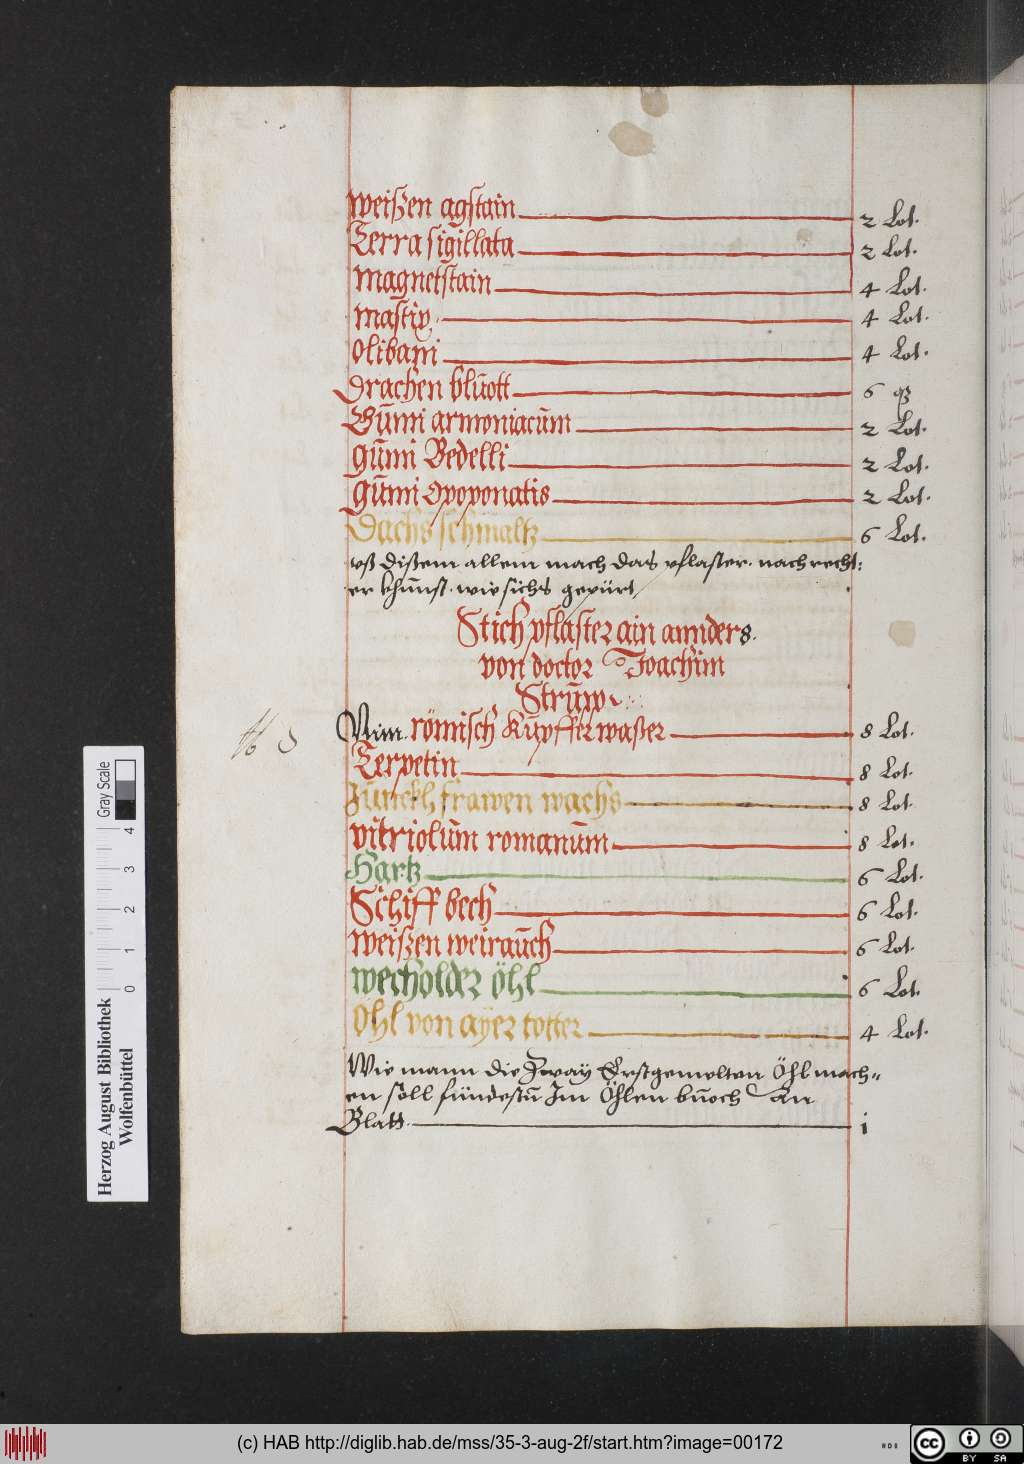 weißen agstain 2 Lot.
Terra sigillata 2 Lot.
magnetstain 4 Lot.
mastix 4 Lot.
Olibani 4 Lot.
Drachen blůott 6 q3
Gūmi armoniacūm 2 Lot.
gūmi Bedelli 2 Lot.
gūmi Opoponatis 2 Lot.
Dachs schmaltz 6 Lot.
vß dißem allem mach das pflaster. nach recht:
er khūnst. wie sichs gepürt
Stich pflaster ain annders.
von doctor Joachim
Strūw
Nim römisch Kūpffer waßer 8 Lot.
Terpetin 8 Lot.
Jūnckh frawen wachs 8 Lot.
vitriolūm romanūm 8 Lot.
Hartz 6 Lot.
Schiff bech 6 Lot.
weißen weiraūch 6 Lot.
wecholder öhl 6 Lot.
Öhl von ayer totter 4 Lot.
Wie mann die Zway Erstgemelten Öhl mach=
en soll fündestū Jm Öhlen bůoch An
Blatt i
Gray Scale
0 1 2 3 4
Herzog August Bibliothek
Wolfenbüttel
(c) HAB http://diglib.hab.de/mss/35-3-aug-2f/start.htm?image=00172
cc BY SA